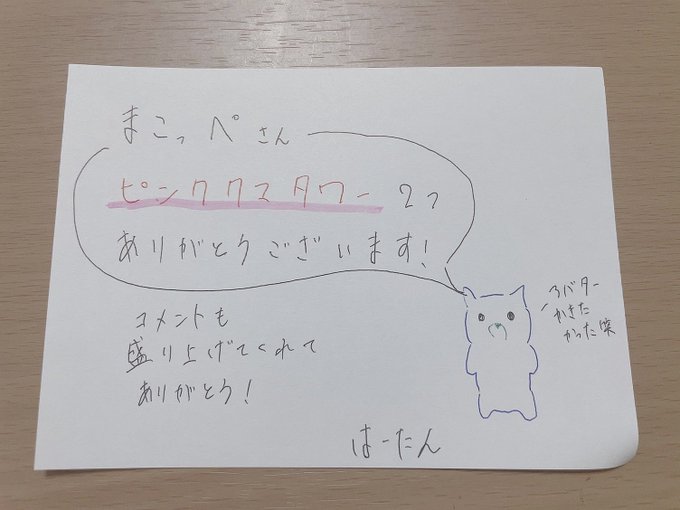 まこっペさん
ピンククマタワー 2つ
ありがとうございます!
コメントも
盛り上げてくれて
ありがとう!
アバター
かきた
かった笑
はーたん